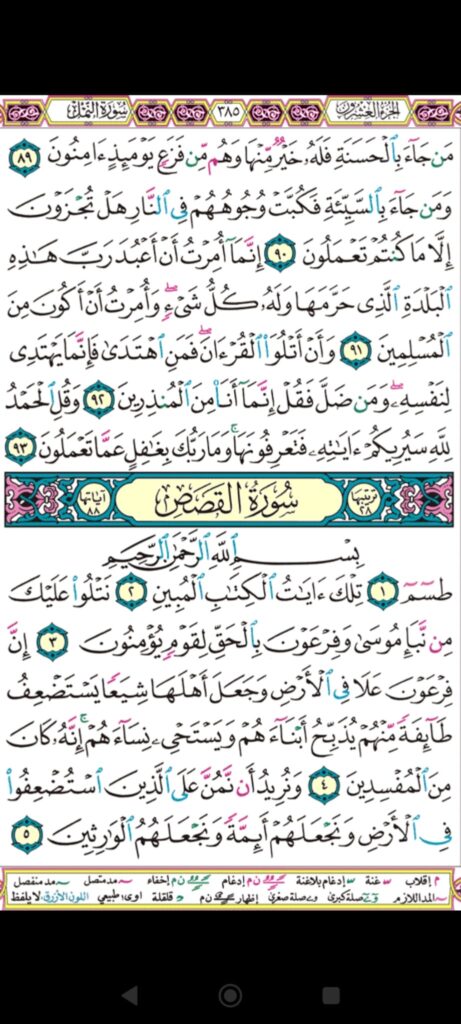 الجزء العشرون ٣٨٥ سورة النمل
مَن جَآءَ بِٱلْحَسَنَةِ فَلَهُۥ خَيْرٌ مِّنْهَا وَهُم مِّن فَزَعٍ يَوْمَئِذٍ ءَامِنُونَ ٨٩
وَمَن جَآءَ بِٱلسَّيِّئَةِ فَكُبَّتْ وُجُوهُهُمْ فِى ٱلنَّارِ هَلْ تُجْزَوْنَ
إِلَّا مَا كُنتُمْ تَعْمَلُونَ ٩٠ إِنَّمَآ أُمِرْتُ أَنْ أَعْبُدَ رَبَّ هَٰذِهِ
ٱلْبَلْدَةِ ٱلَّذِى حَرَّمَهَا وَلَهُۥ كُلُّ شَىْءٍۖ وَأُمِرْتُ أَنْ أَكُونَ مِنَ
ٱلْمُسْلِمِينَ ٩١ وَأَنْ أَتْلُوَا۟ ٱلْقُرْءَانَۖ فَمَنِ ٱهْتَدَىٰ فَإِنَّمَا يَهْتَدِى
لِنَفْسِهِۦۖ وَمَن ضَلَّ فَقُلْ إِنَّمَآ أَنَا۠ مِنَ ٱلْمُنذِرِينَ ٩٢ وَقُلِ ٱلْحَمْدُ
لِلَّهِ سَيُرِيكُمْ ءَايَٰتِهِۦ فَتَعْرِفُونَهَاۚ وَمَا رَبُّكَ بِغَٰفِلٍ عَمَّا تَعْمَلُونَ ٩٣
ترتيبها ٢٨ سُورَةُ القَصَصِ آياتها ٨٨
بِسْمِ ٱللَّهِ ٱلرَّحْمَٰنِ ٱلرَّحِيمِ
طسٓمٓ ١ تِلْكَ ءَايَٰتُ ٱلْكِتَٰبِ ٱلْمُبِينِ ٢ نَتْلُوا۟ عَلَيْكَ
مِن نَّبَإِ مُوسَىٰ وَفِرْعَوْنَ بِٱلْحَقِّ لِقَوْمٍ يُؤْمِنُونَ ٣ إِنَّ
فِرْعَوْنَ عَلَا فِى ٱلْأَرْضِ وَجَعَلَ أَهْلَهَا شِيَعًا يَسْتَضْعِفُ
طَآئِفَةً مِّنْهُمْ يُذَبِّحُ أَبْنَآءَهُمْ وَيَسْتَحْىِۦ نِسَآءَهُمْۚ إِنَّهُۥ كَانَ
مِنَ ٱلْمُفْسِدِينَ ٤ وَنُرِيدُ أَن نَّمُنَّ عَلَى ٱلَّذِينَ ٱسْتُضْعِفُوا۟
فِى ٱلْأَرْضِ وَنَجْعَلَهُمْ أَئِمَّةً وَنَجْعَلَهُمُ ٱلْوَٰرِثِينَ ٥
م إقلاب غنة إدغام بلاغنة ن م إدغام ن م إخفاء مد متصل مد منفصل
المد اللازم صلة كبرى صلة صغرى إظهار ن م قلقلة اوى: طبيعي اللون الأزرق: لا يلفظ